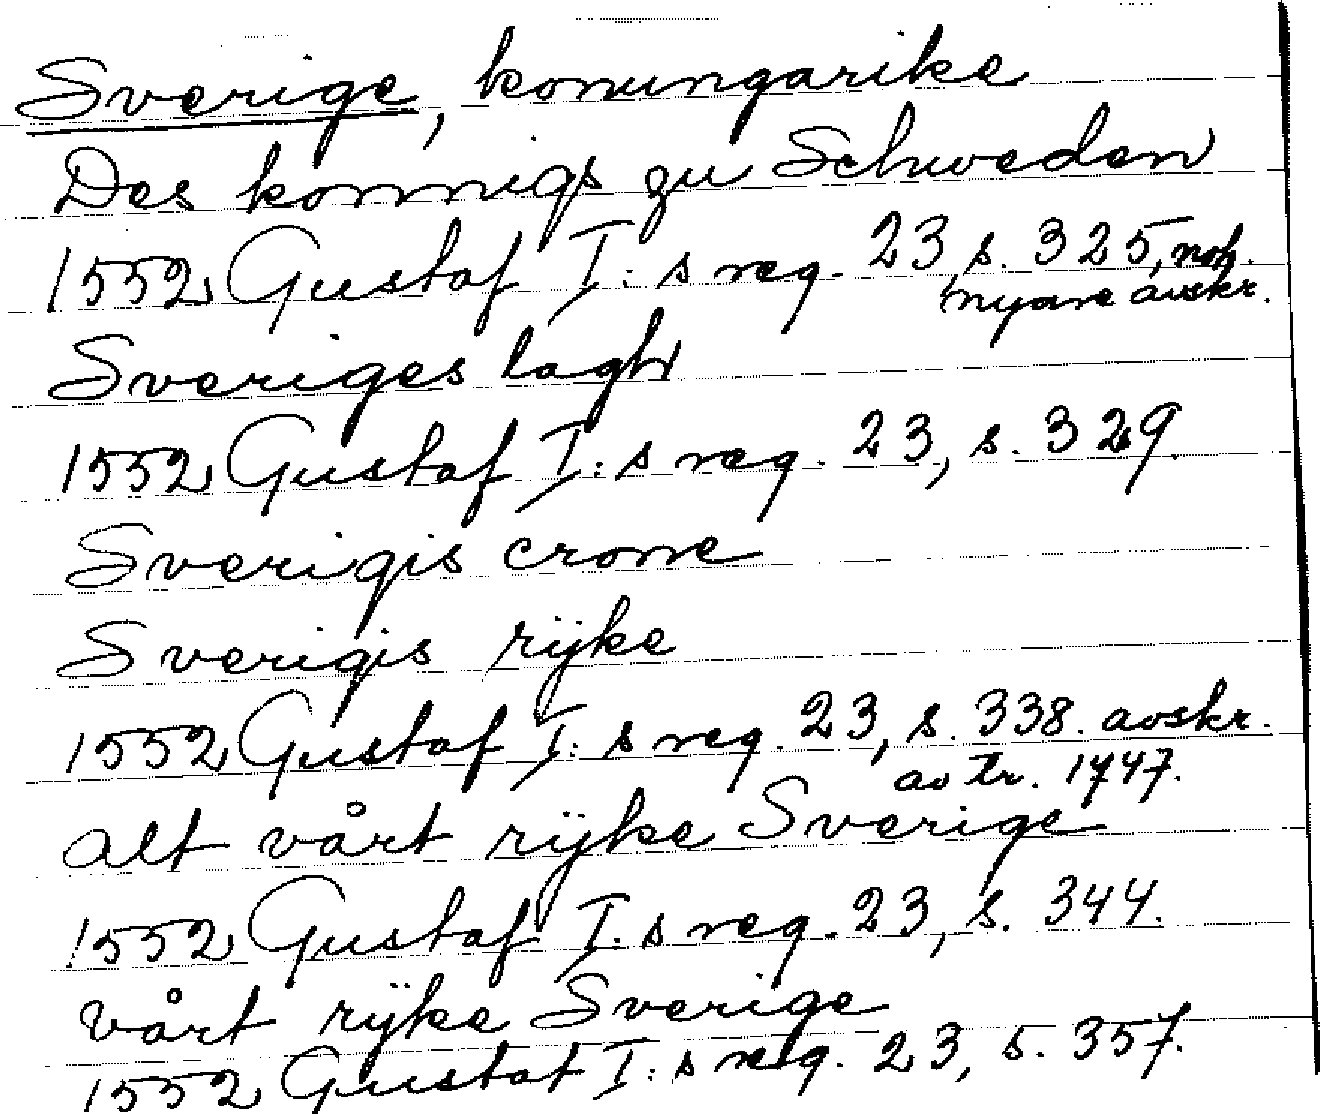 Sverige, konungarike
Des konnigs zu Schweden
1552 Gustaf I:s reg. 23, s. 325, 
nyare avskr.
Sveriges lagh
1552 Gustaf I:s reg. 23, s. 329.
Sverigis crone
Sverigis rijke
1552 Gustaf I:s reg. 23, s. 338. avskr.
av tr. 1747.
alt vårt rijke Sverige
1552 Gustaf I:s reg. 23, s. 344.
vårt rijke Sverige
1552 Gustaf I:s reg. 23, s. 357.